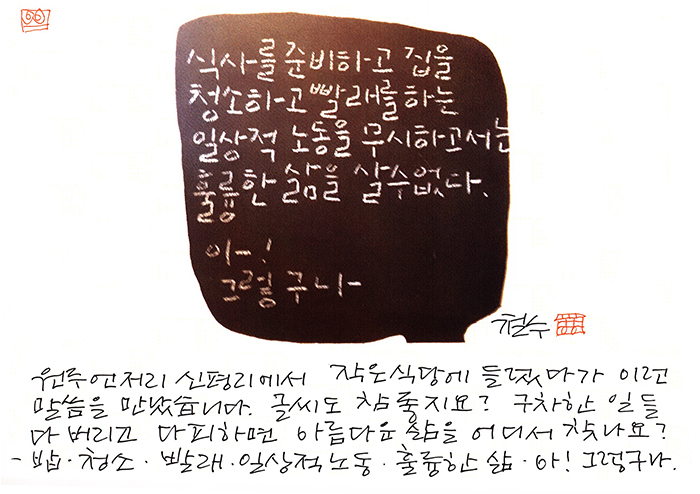 식사를 준비하고 집을
청소하고 빨래를하는
일상적 노동을 무시하고서는
훌륭한 삶을 살수없다.
아-!
그렇구나-
철수
원주언저리 신평리에서 작은식당에 들렀다가 이런
말씀을 만났습니다. 글씨도 참 좋지요? 구차한 일들
다 버리고 다 피하면 아름다운 삶을 어디서 찾나요?
- 밥·청소·빨래·일상적노동·훌륭한 삶·아! 그렇구나.